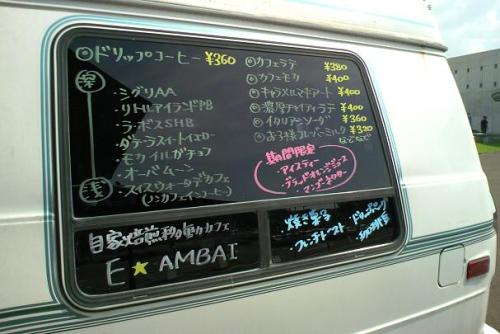 ◎ドリップコーヒー ¥360
深
・ミグリAA
・リトルアイランドPB
・ラ・ボスSHB
・ダテーラスイートイエロー
・モカイルガチョフ
・オーバムーン
・スイスウォータデカフェ
(ノンカフェインコーヒー)
浅
◎カフェラテ ¥380
◎カフェモカ ¥400
◎キャラメルマキアート ¥400
◎濃厚チャイティラテ ¥400
◎イタリアンソーダ ¥360
◎お子様フレーバーミルク ¥320
などなど
期間限定
・アイスティー
・ブラッドオレンジジュース
・マンゴーネクター
自家焙煎移動カフェ
E★AMBAI
焼き菓子
・フレンチトースト